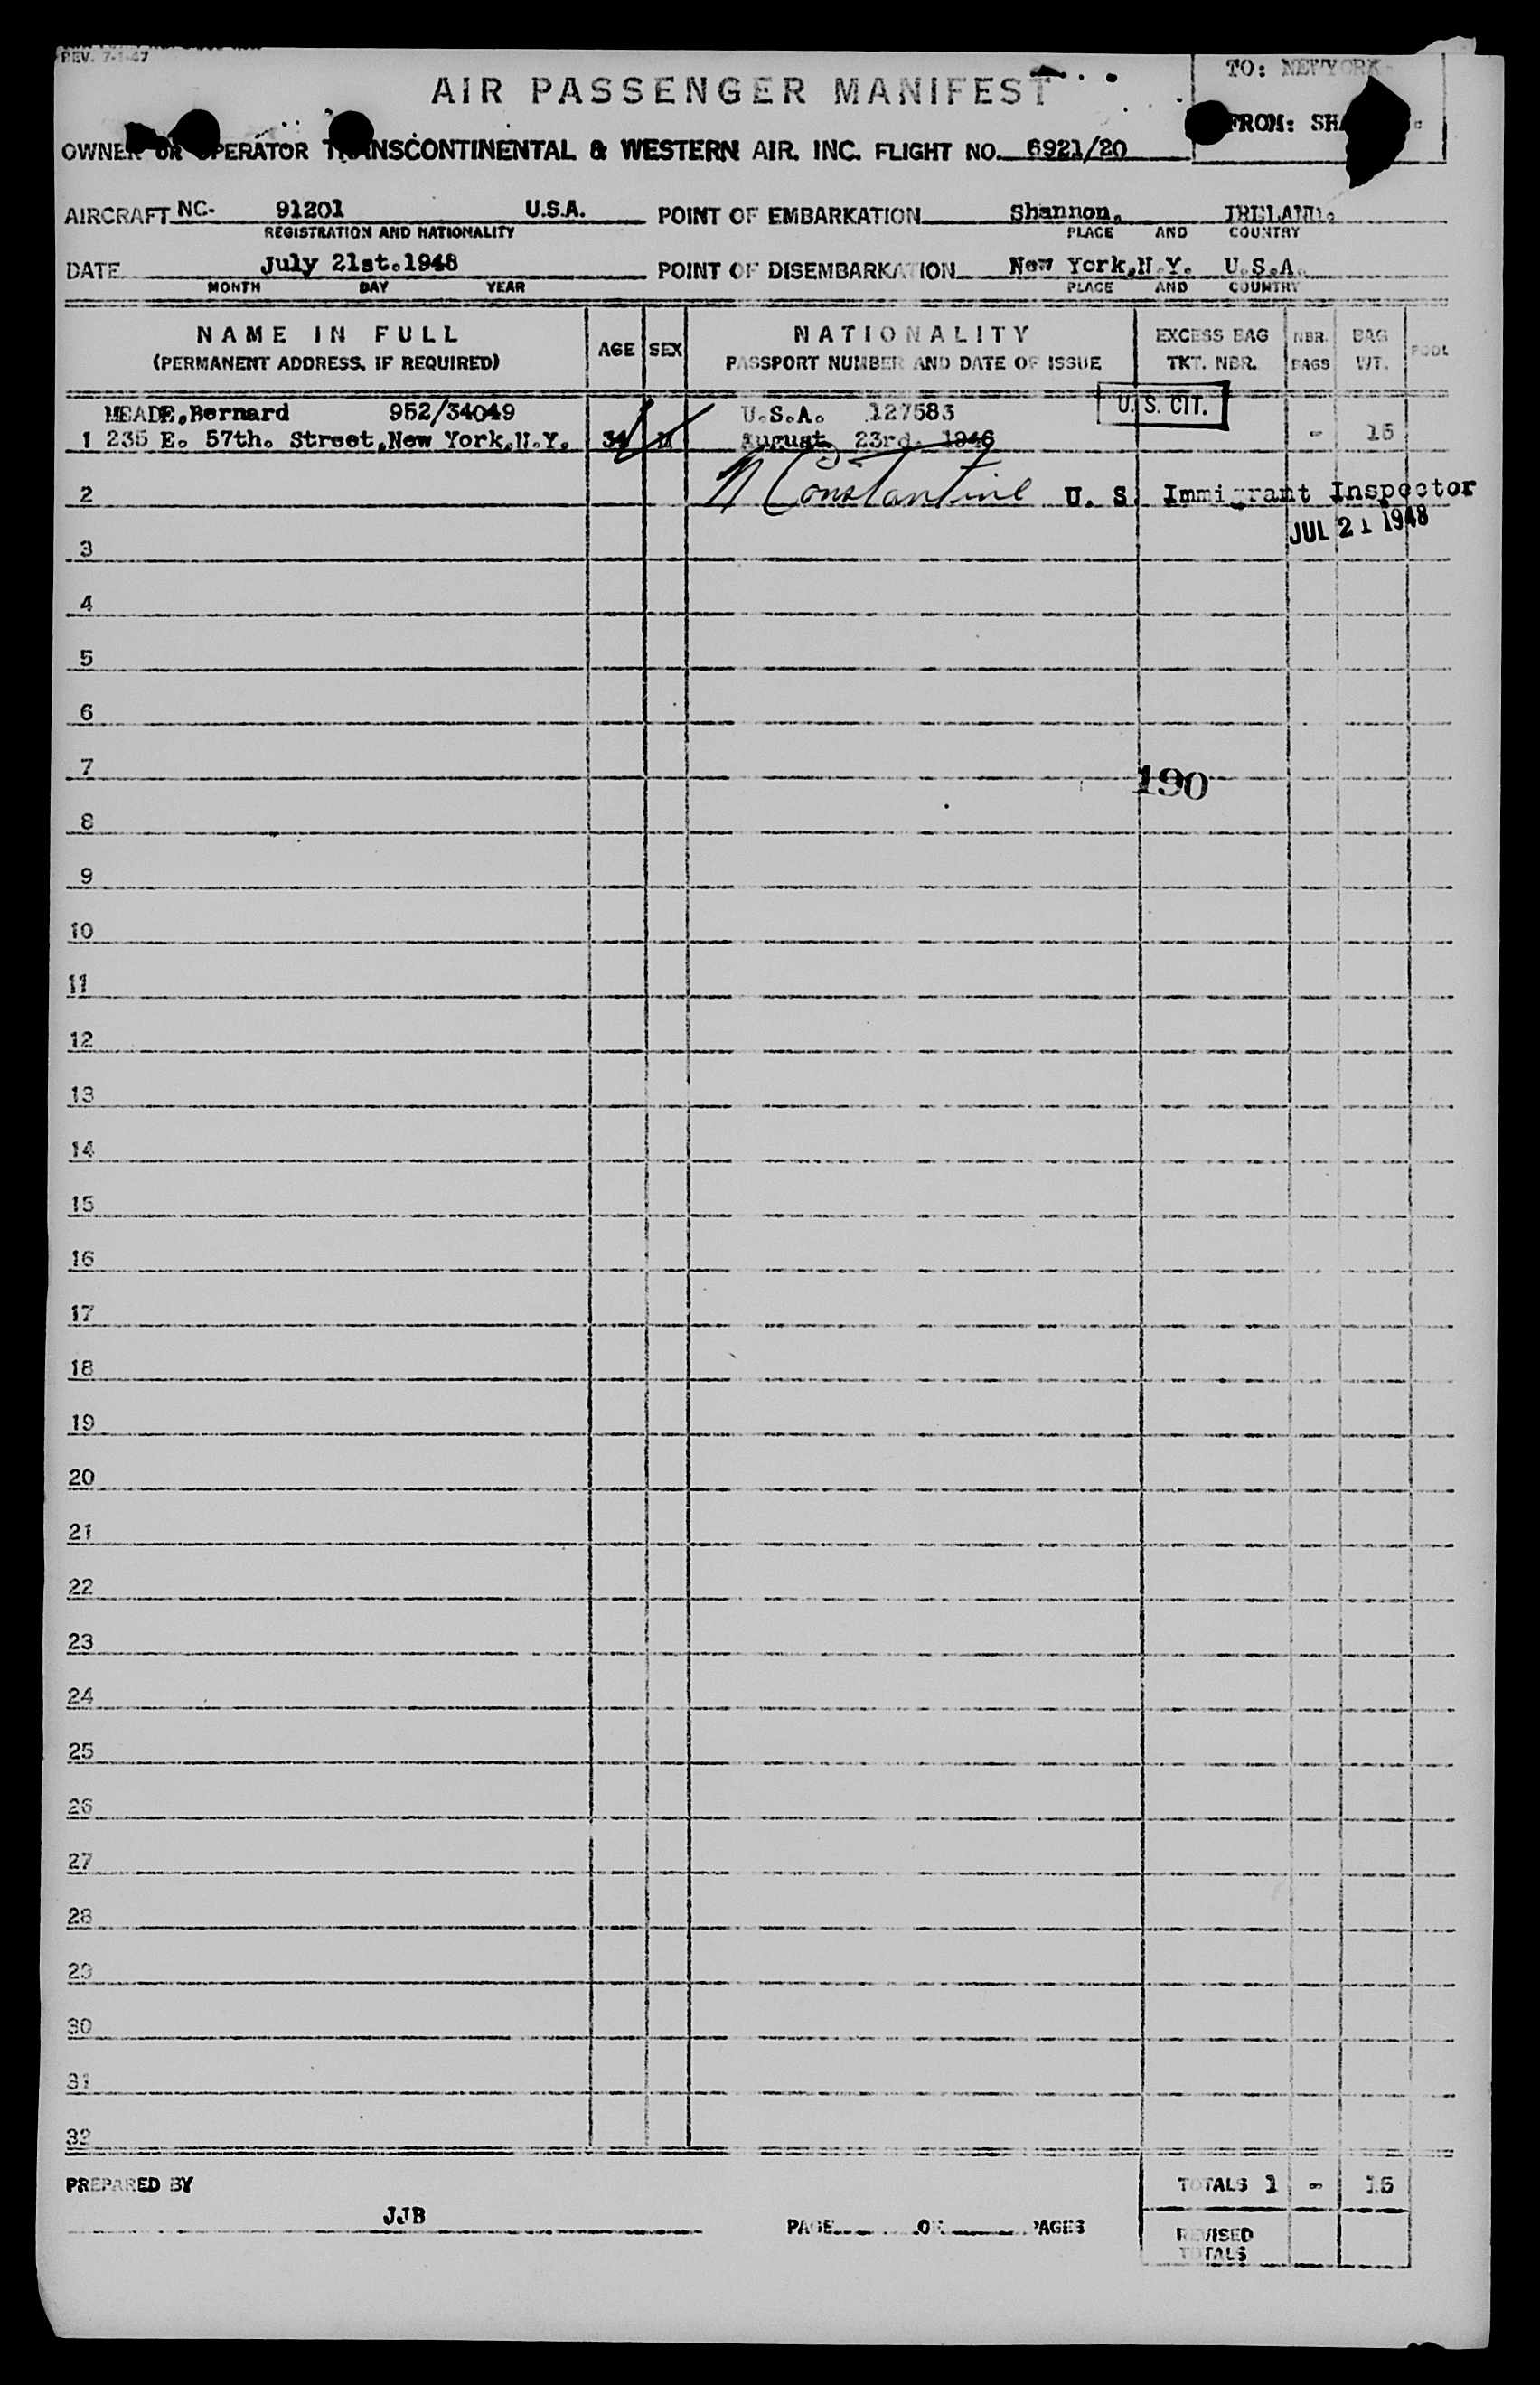 REV. 7-1-47
AIR PASSENGER MANIFEST
TO: NEW YORK
FROM: SHA
OWNER OR OPERATOR TRANSCONTINENTAL & WESTERN AIR. INC. FLIGHT NO. 6921/20
AIRCRAFT NC- 91201 U.S.A. POINT OF EMBARKATION Shannon, IRELAND.
REGISTRATION AND NATIONALITY PLACE AND COUNTRY
DATE July 21st.1948 POINT OF DISEMBARKATION New York,N.Y. U.S.A.
MONTH DAY YEAR PLACE AND COUNTRY
NAME IN FULL AGE SEX NATIONALITY EXCESS BAG NBR. BAG
(PERMANENT ADDRESS, IF REQUIRED) PASSPORT NUMBER AND DATE OF ISSUE TKT. NBR. BAGS WT.
MEADE,Bernard 952/34049 U.S.A. 127583 U. S. CIT.
1 235 E. 57th. Street,New York,N.Y. 34 M August 23rd. 1946 - 15
2 N Constantine U. S. Immigrant Inspector
3 JUL 21 1948
4
5
6
7 190
8
9
10
11
12
13
14
15
16
17
18
19
20
21
22
23
24
25
26
27
28
29
30
31
32
PREPARED BY TOTALS 1 - 15
JJB PAGE OF PAGES
REVISED
TOTALS